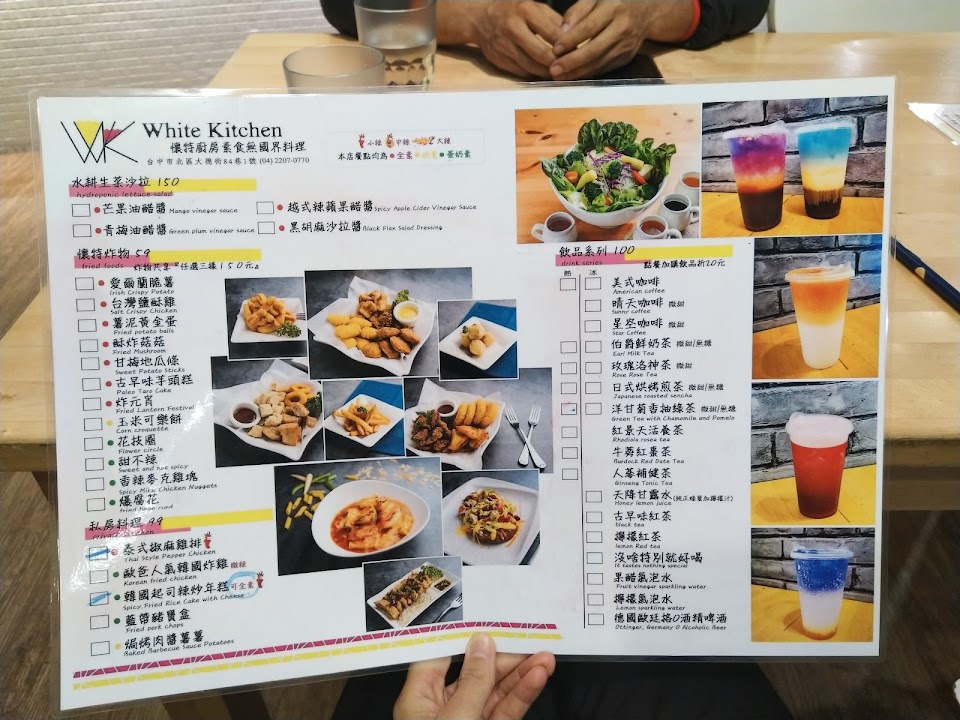 WK White Kitchen
懷特廚房素食無國界料理
台中市北區大德街84巷1號 (04) 2207-0770
小辣 中辣 大辣
本店餐點均為 全素 奶素 蛋奶素
水耕生菜沙拉 150
hydroponic lettuce salad
芒果油醋醬 Mango vinegar sauce
越式辣蘋果醋醬 Spicy Apple Cider Vinegar Sauce
青梅油醋醬 Green plum vinegar sauce
黑胡麻沙拉醬 Black Flax Salad Dressing
懷特炸物 59
fried foods 炸物共享 "任選三樣150元"
愛爾蘭脆薯
Irish Crispy Potato
台灣鹽酥雞
Salt Crispy Chicken
薯泥黃金蛋
Fried potato balls
酥炸菇菇
Fried Mushroom
甘梅地瓜條
Sweet Potato Sticks
古早味芋頭糕
Paleo Taro Cake
炸元宵
Fried Lantern Festival
玉米可樂餅
Corn croquette
花枝圈
Flower circle
甜不辣
Sweet and not spicy
香辣麥克雞塊
Spicy Mike Chicken Nuggets
爆腐花
私房料理 99
泰式椒麻雞排
Thai Style Pepper Chicken
歐爸人氣韓國炸雞 微辣
Korean fried chicken
韓國起司辣炒年糕 可全素
Spicy Fried Rice Cake with Cheese
藍帶豬寶盒
Fried pork chops
焗烤肉醬薯薯
Baked Barbecue Sauce Potatoes
飲品系列 100
drink series 點餐加購飲品折20元
熱 冰
美式咖啡
American coffee
晴天咖啡 微甜
Sunny coffee
星空咖啡 微甜
Star Coffee
伯爵鮮奶茶 微甜/無糖
Earl Milk Tea
玫瑰洛神茶 微甜
Rose Rose Tea
日式烘烤煎茶 微甜/無糖
Japanese roasted sencha
洋甘菊香柚綠茶 微甜/無糖
Green Tea with Chamomile and Pomelo
紅景天活養茶
Rhodiola rosea tea
牛蒡紅棗茶
Burdock Red Date Tea
人蔘補健茶
Ginseng Tonic Tea
天降甘露水 (純正蜂蜜加檸檬汁)
Honey lemon juice
古早味紅茶
black tea
檸檬紅茶
lemon Red tea
沒啥特別就好喝
It tastes nothing special
果醋氣泡水
Fruit vinegar sparkling water
檸檬氣泡水
Lemon sparkling water
德國歐廷格0酒精啤酒
Ottinger, Germany 0 Alcoholic Beer